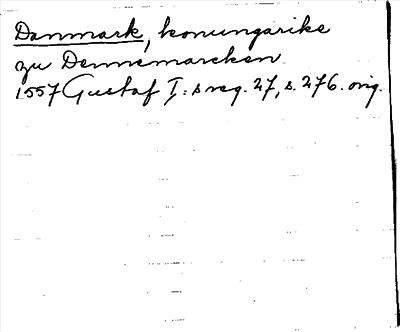 Danmark, konungarike
zu Dennemarcken
1557 Gustaf I:s reg. 27, s. 276. orig.